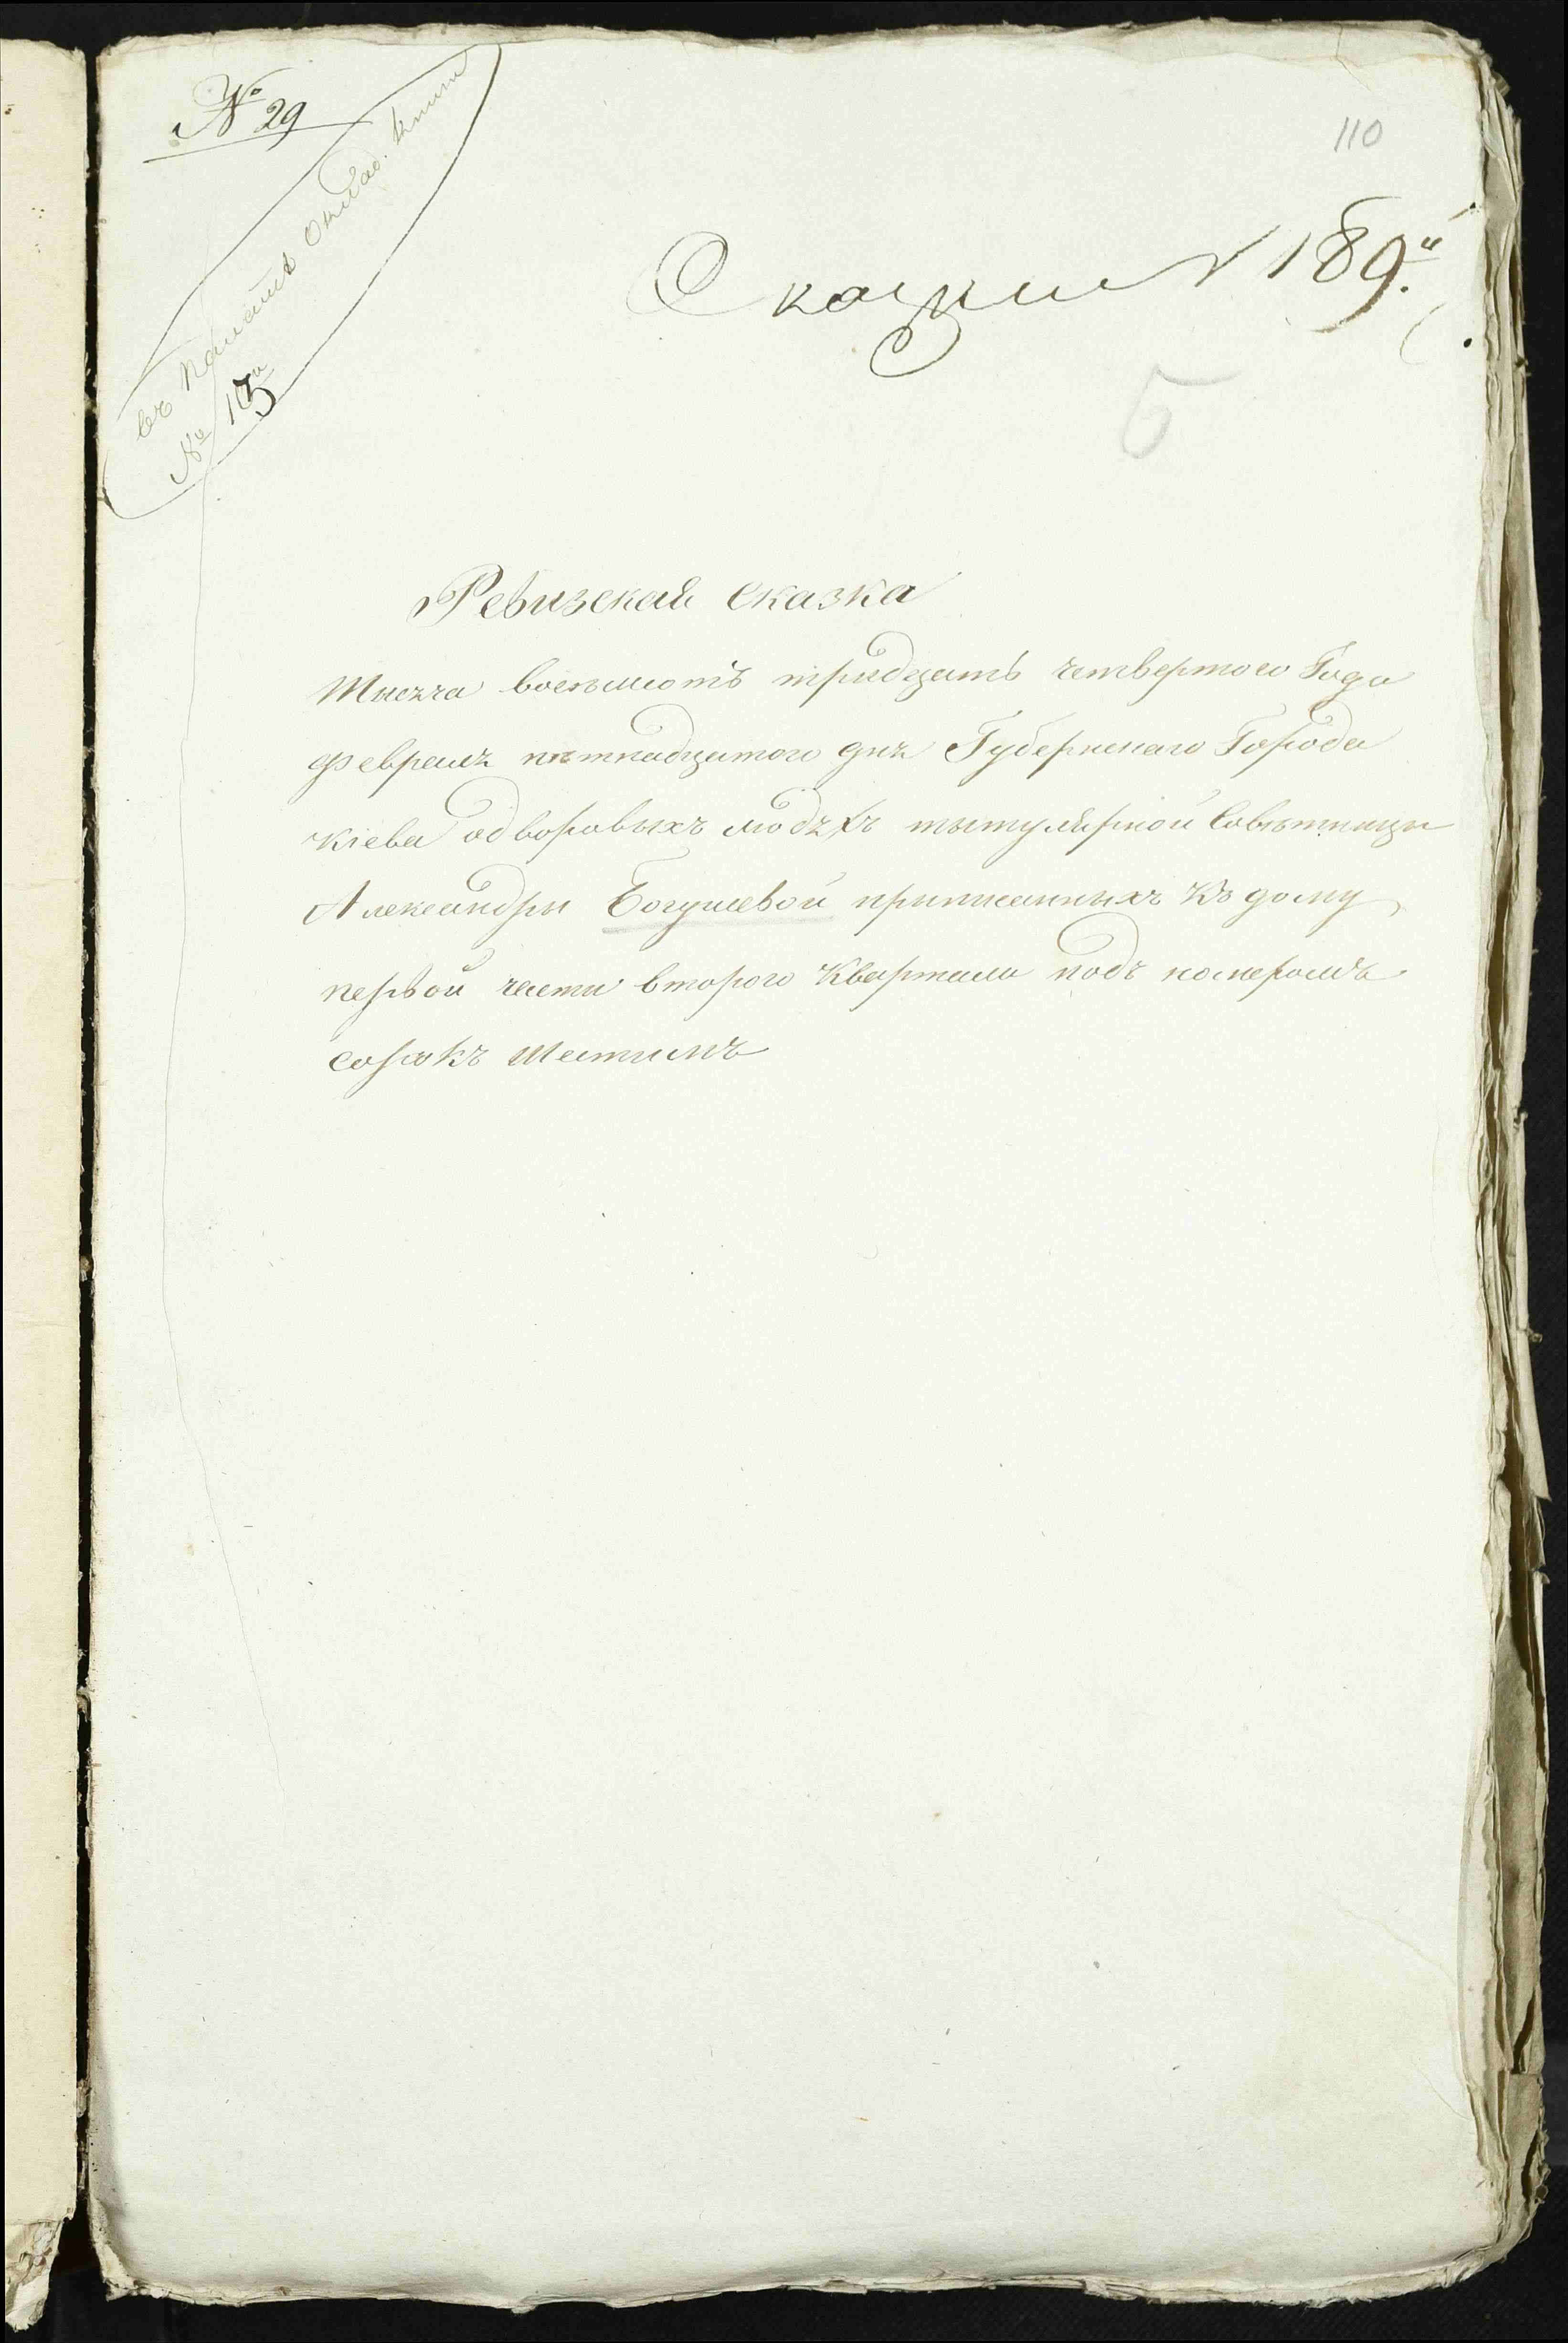 № 29
въ палатѣ оклад. книги
№ 13й
110
Сказки № 189.й
5
Ревизская сказка
Тысяча восемьсотъ тридцать четвертого Года
февраля пятнадцатого дня Губернскаго Города
Кіева одворовыхъ людяхъ тытулярной Совѣтницы
Александры Богушевой приписанныхъ Къ дому
первой части второго Квартала подъ номеромъ
сорокъ шестымъ